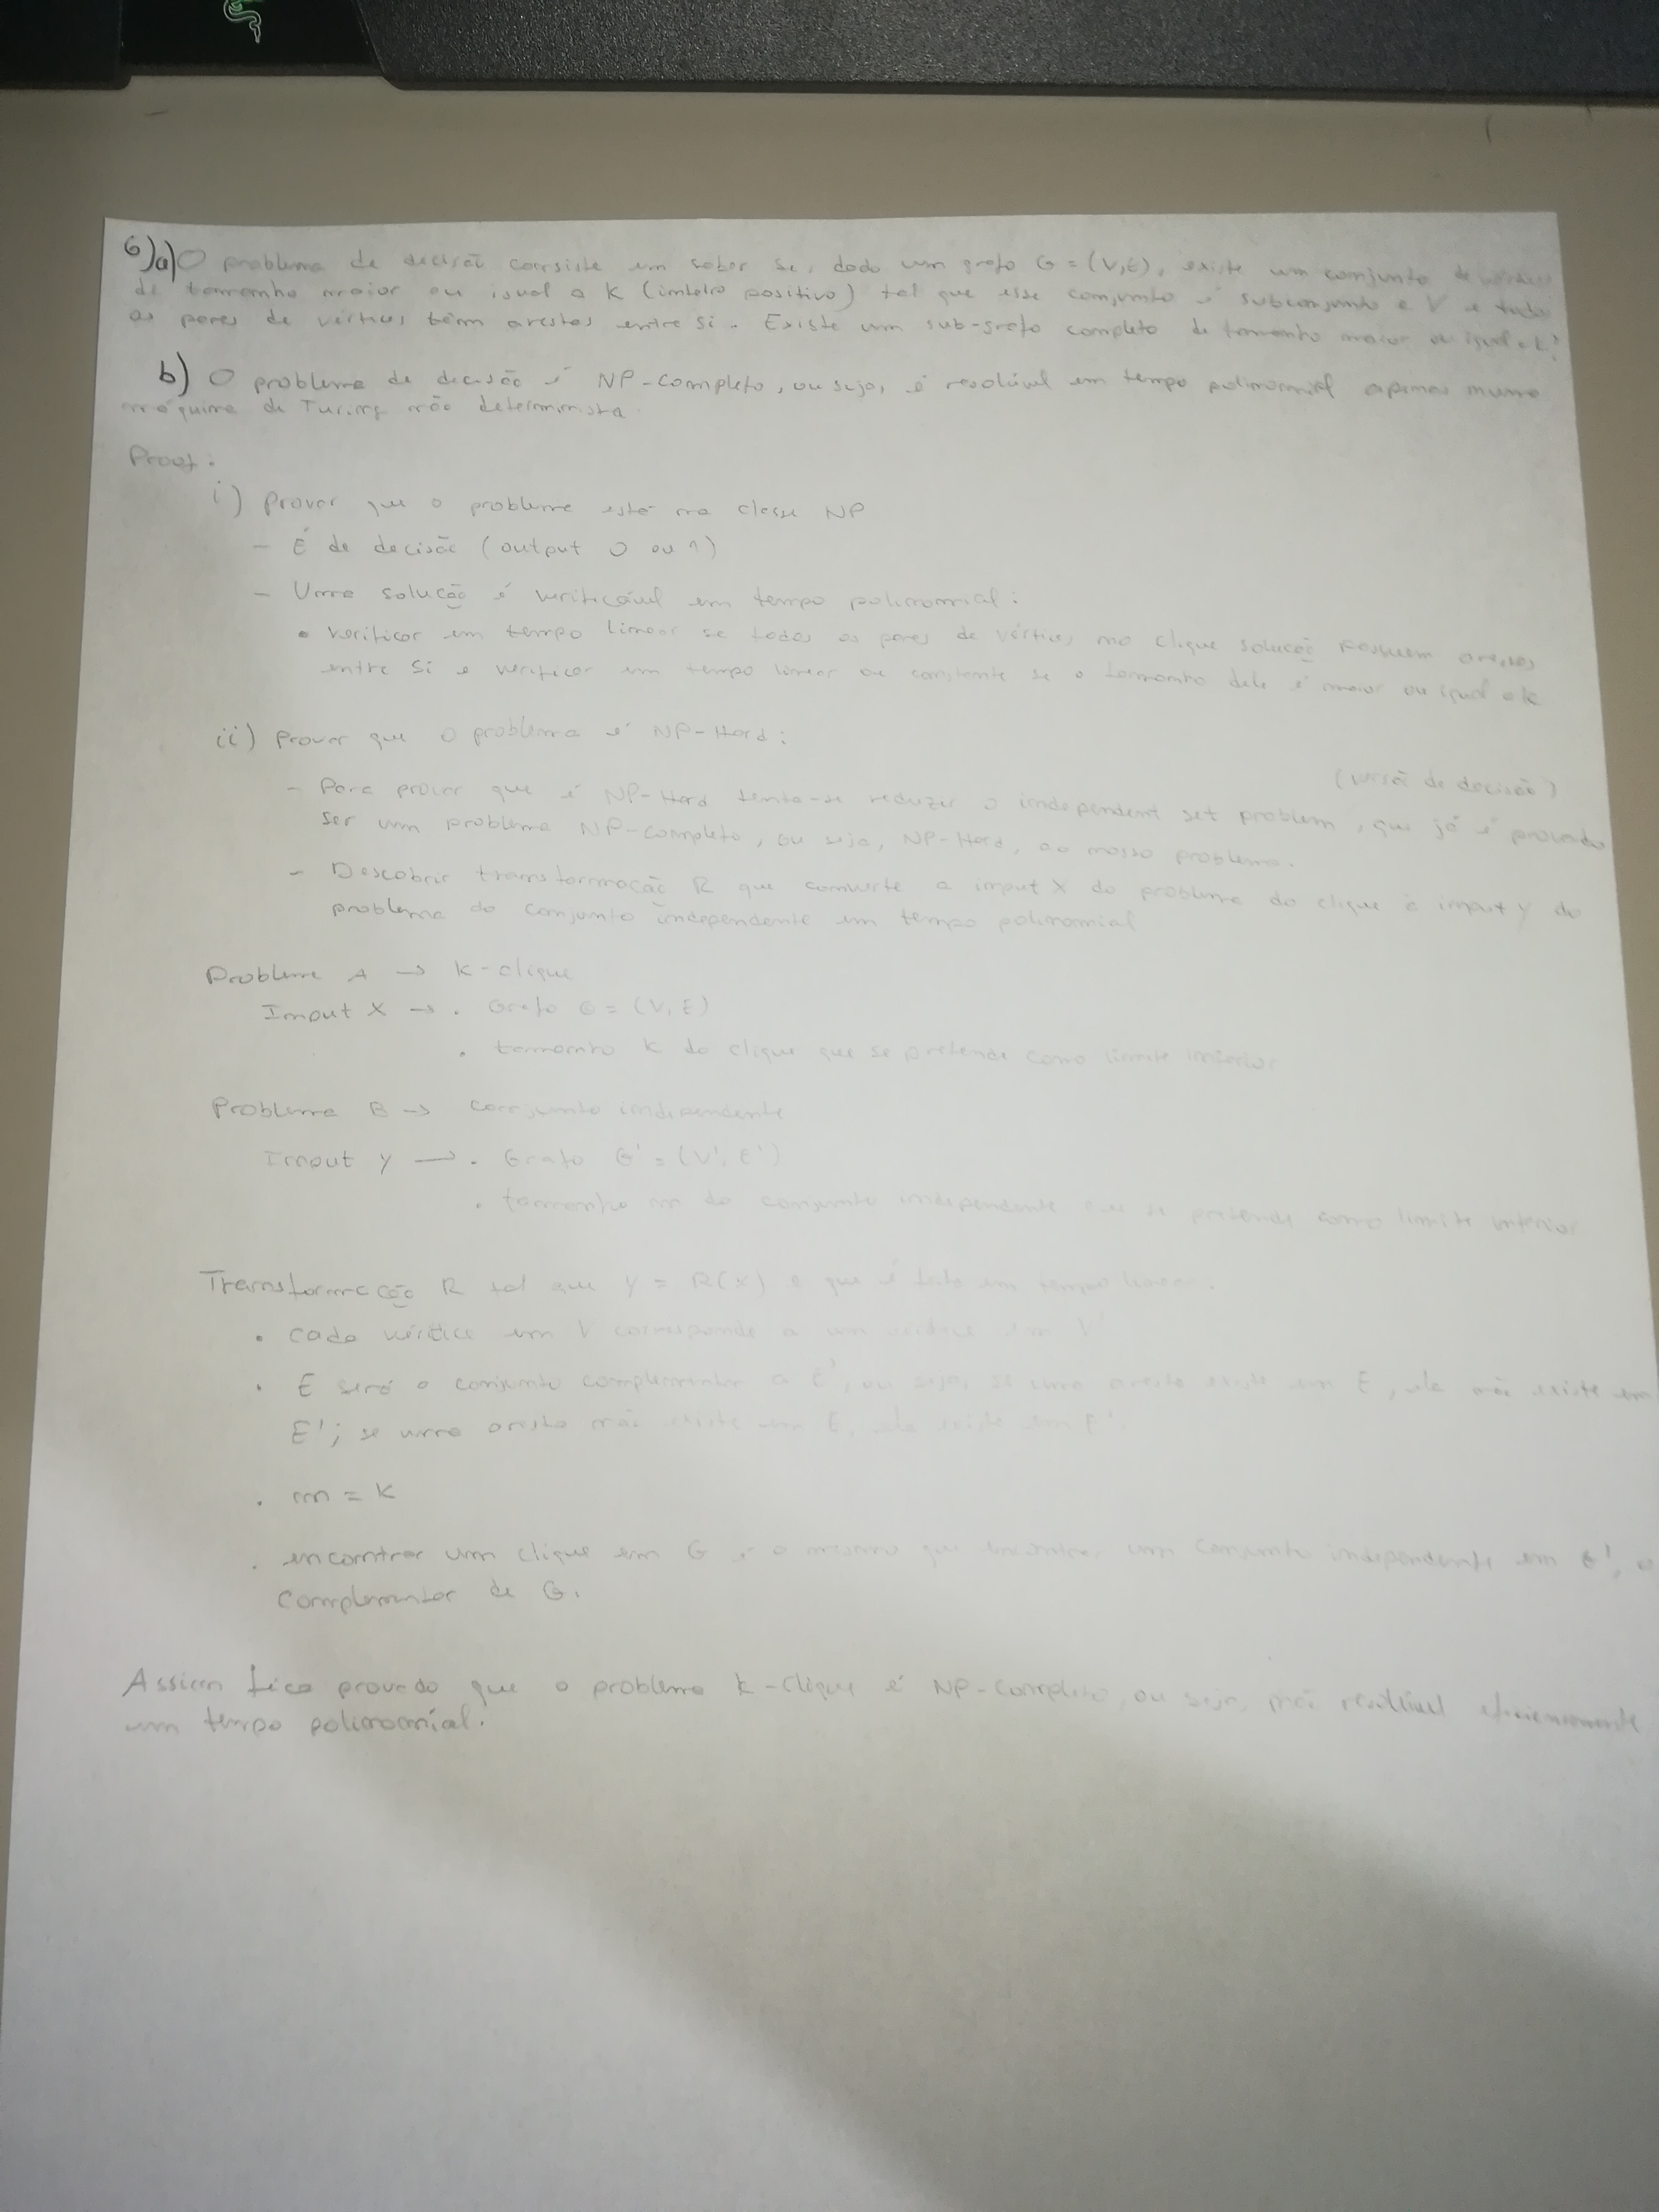 6)a) O problema de decisão consiste em saber se, dado um grafo G = (V,E), existe um conjunto de vértices
de tamanho maior ou igual a K (inteiro positivo) tal que esse conjunto é subconjunto e V e todos
os pares de vértices têm arestas entre si. Existe um sub-grafo completo de tamanho maior ou igual a k?
b) O problema de decisão é NP-Completo, ou seja, é resolúvel em tempo polinomial apenas numa
máquina de Turing não determinista.
Proof:
i) Provar que o problema está na classe NP
- É de decisão (output 0 ou 1)
- Uma solução é verificável em tempo polinomial:
• verificar em tempo linear se todos os pares de vértices no clique solução possuem arestas
entre si e verificar em tempo linear ou constante se o tamanho dele é maior ou igual a k
ii) Provar que o problema é NP-Hard:
(versão de decisão)
- Para provar que é NP-Hard tenta-se reduzir o independent set problem, que já é provado
ser um problema NP-completo, ou seja, NP-Hard, ao nosso problema.
- Descobrir transformação R que converte o input X do problema do clique e input y do
problema do conjunto independente em tempo polinomial
Problema A → K-clique
Input X → • Grafo G = (V, E)
• tamanho K do clique que se pretende como limite inferior
Problema B → conjunto independente
Input y → • Grafo G' = (V', E')
• tamanho m do conjunto independente que se pretende como limite inferior
Transformação R tal que y = R(x) e que é feito em tempo linear.
• cada vértice em V corresponde a um vértice em V'
• E será o conjunto complementar a E', ou seja, se uma aresta existe em E, ela não existe em
E'; se uma aresta não existe em E, ela existe em E'.
• m = K
• encontrar um clique em G é o mesmo que encontrar um conjunto independente em G', o
complementar de G.
Assim fica provado que o problema k-clique é NP-Completo, ou seja, não resolúvel eficientemente
em tempo polinomial.